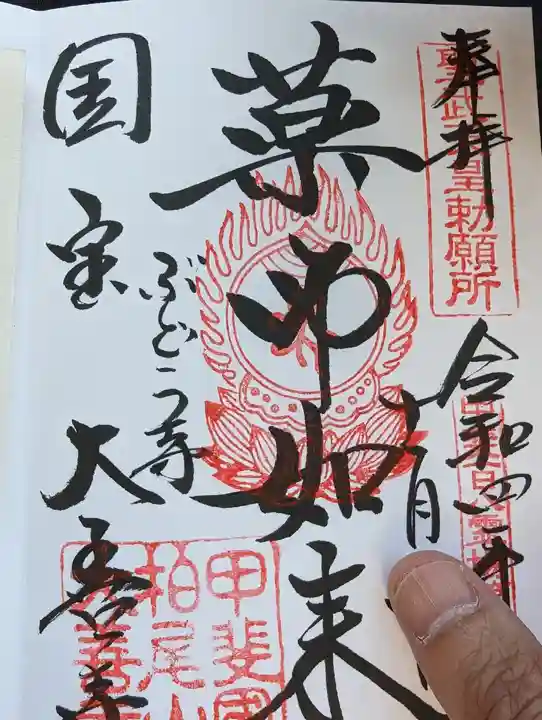 奉拝
聖武天皇勅願所
令和四年
十一月
薬師如来
ぶどう寺
国宝 大善寺
甲斐國
柏尾山
大善寺